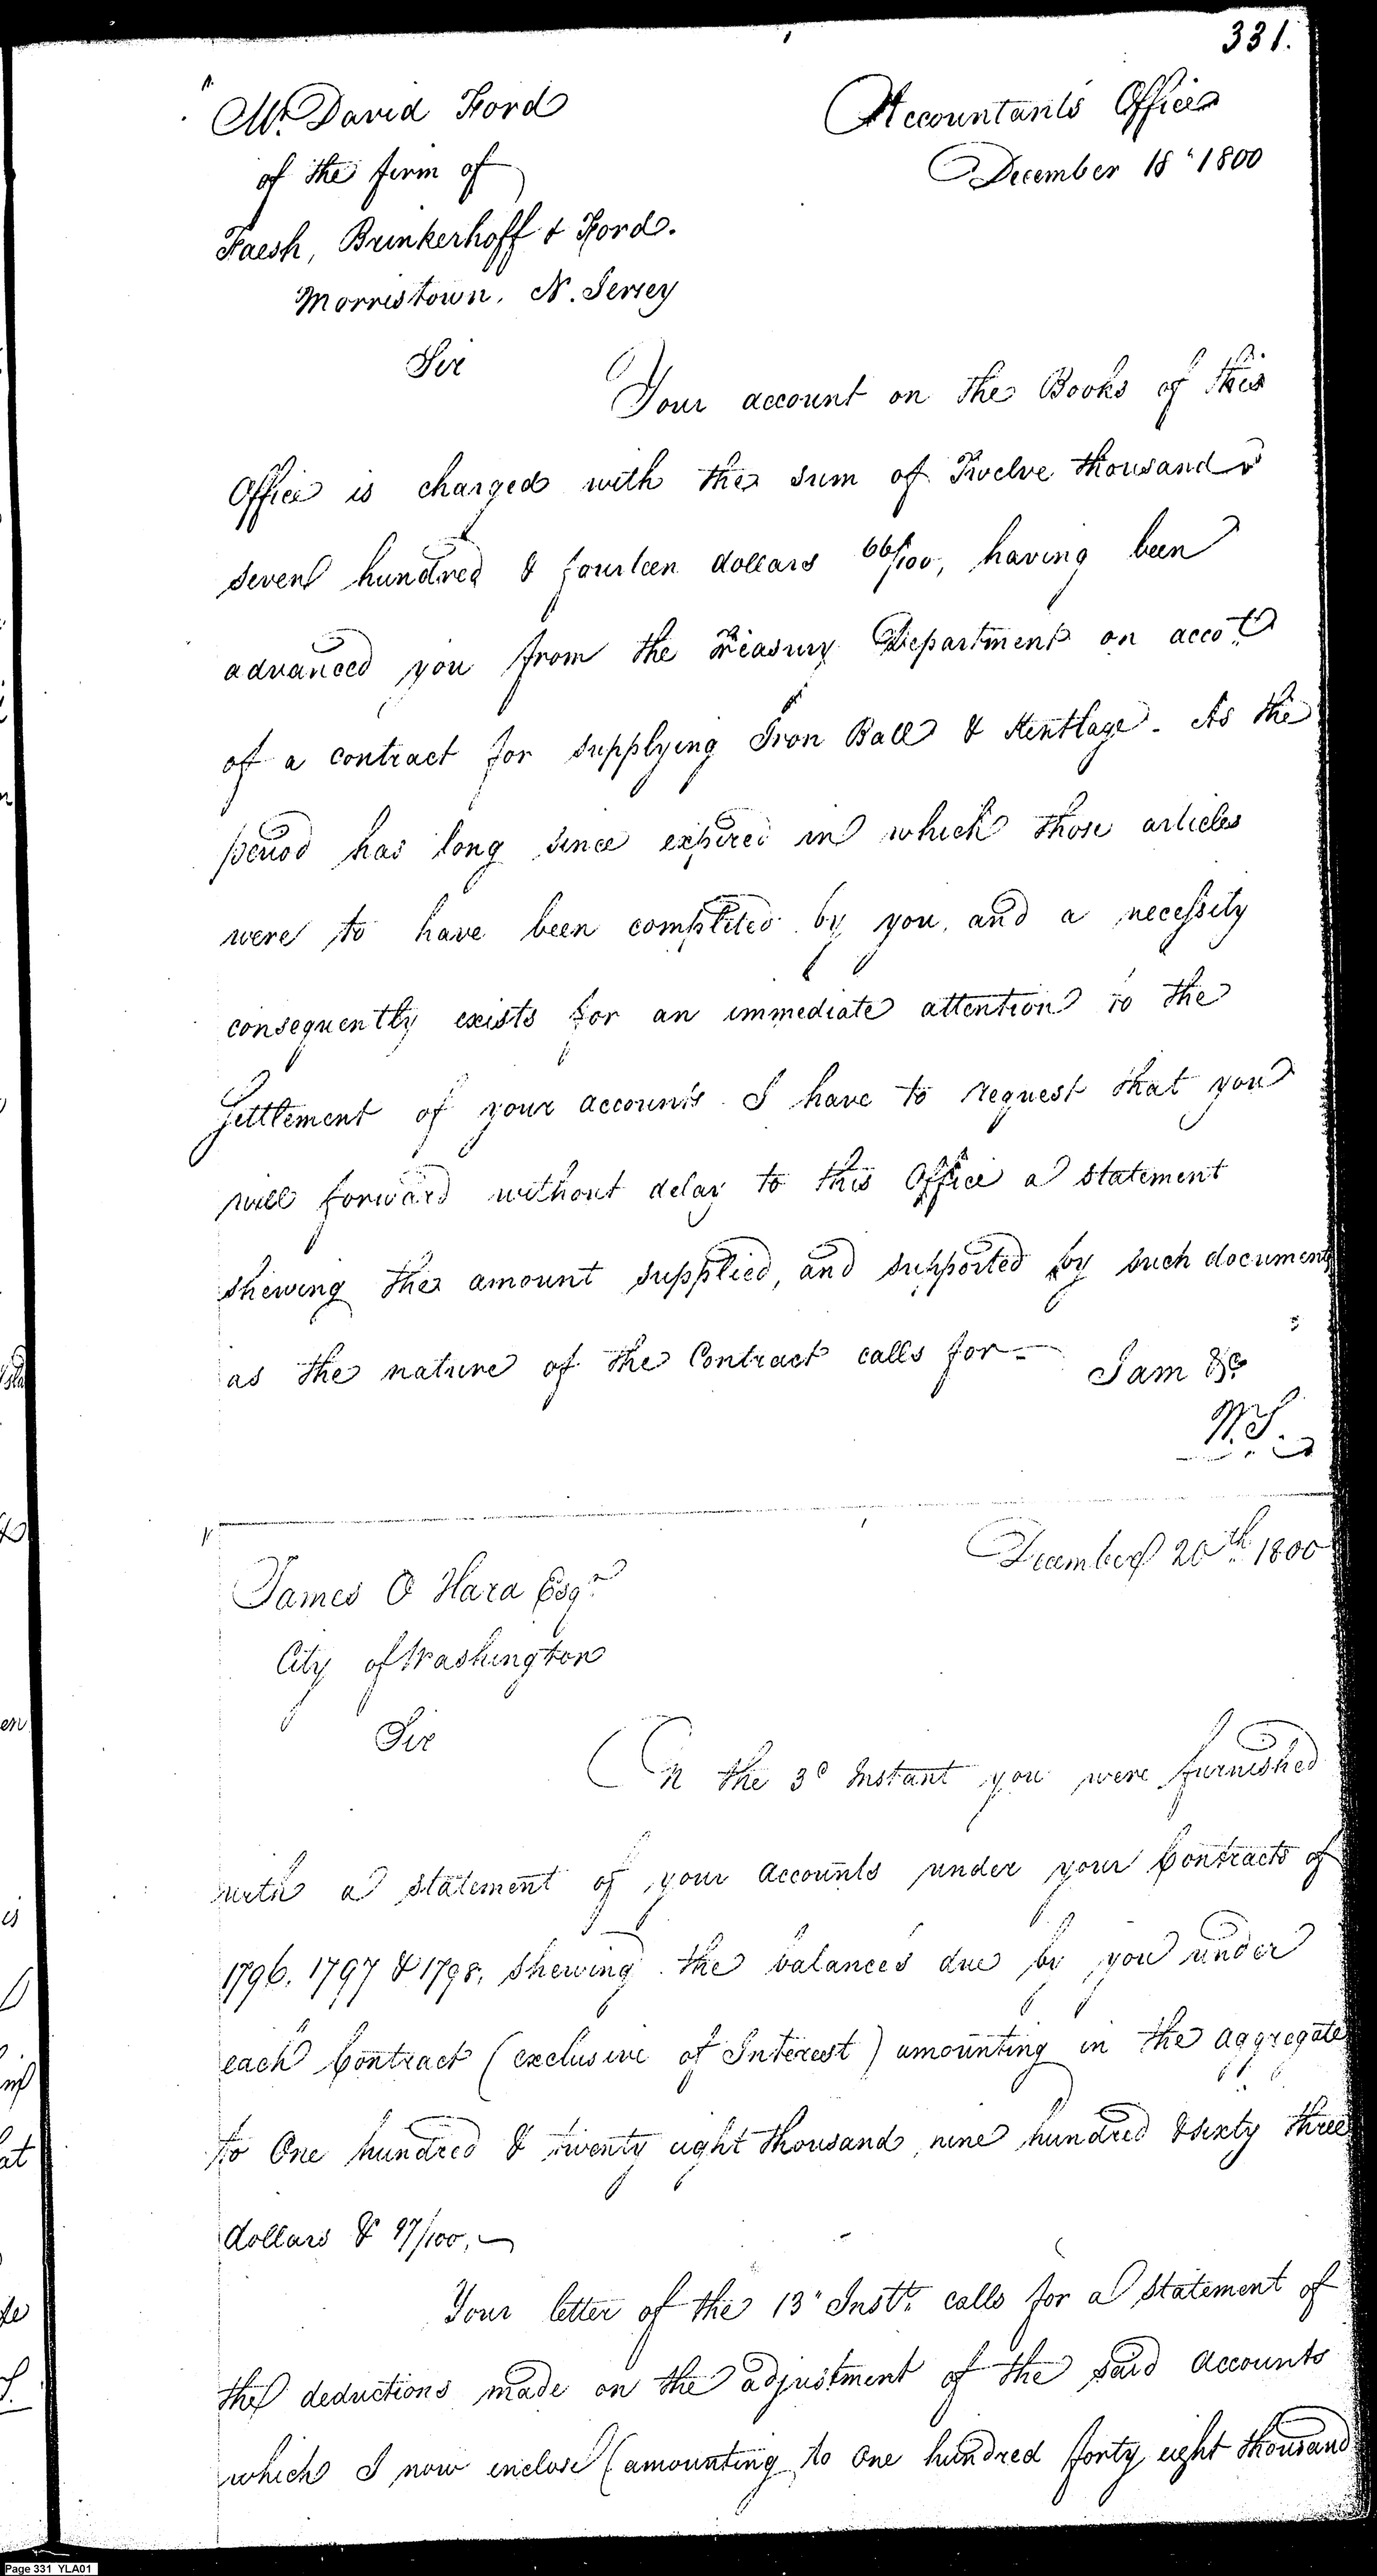 331.
Mr. David Ford
of the firm of
Faesh, Brinkerhoff & Ford.
Morristown, N. Jersey
Accountants Office
December 18" 1800
Sir
Your account on the Books of this
Office is charged with the sum of Twelve thousand
seven hundred & fourteen dollars 66/100, having been
advanced you from the Treasury Department on accot
of a contract for supplying Iron Ball & Kentlage. As the
period has long since expired in which those articles
were to have been completed by you, and a necessity
consequently exists for an immediate attention to the
Settlement of your accounts. I have to request that you
will forward without delay to this Office a statement
shewing the amount supplied, and supported by such documents
as the nature of the Contract calls for -
I am &c
W.S.
December 20th 1800
James O Hara Esqr
City of Washington
Sir
On the 3d Instant you were furnished
with a statement of your accounts under your Contracts of
1796. 1797 & 1798, shewing the balances due by you under
each Contract (exclusive of Interest) amounting in the aggregate
to One hundred & twenty eight thousand, nine hundred & sixty three
dollars & 97/100, ~
Your letter of the 13" Instt. calls for a statement of
the deductions made on the adjustment of the said accounts
which I now inclose (amounting to one hundred forty eight thousand
Page 331 YLA01